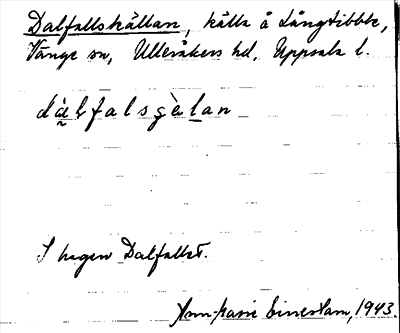 Dalfallskällan, källa å Långtibble,
Vänge sn, Ulleråkers hd, Uppsala l.
I hagen Dalfallet.
Ann-Marie Einerstam, 1943.